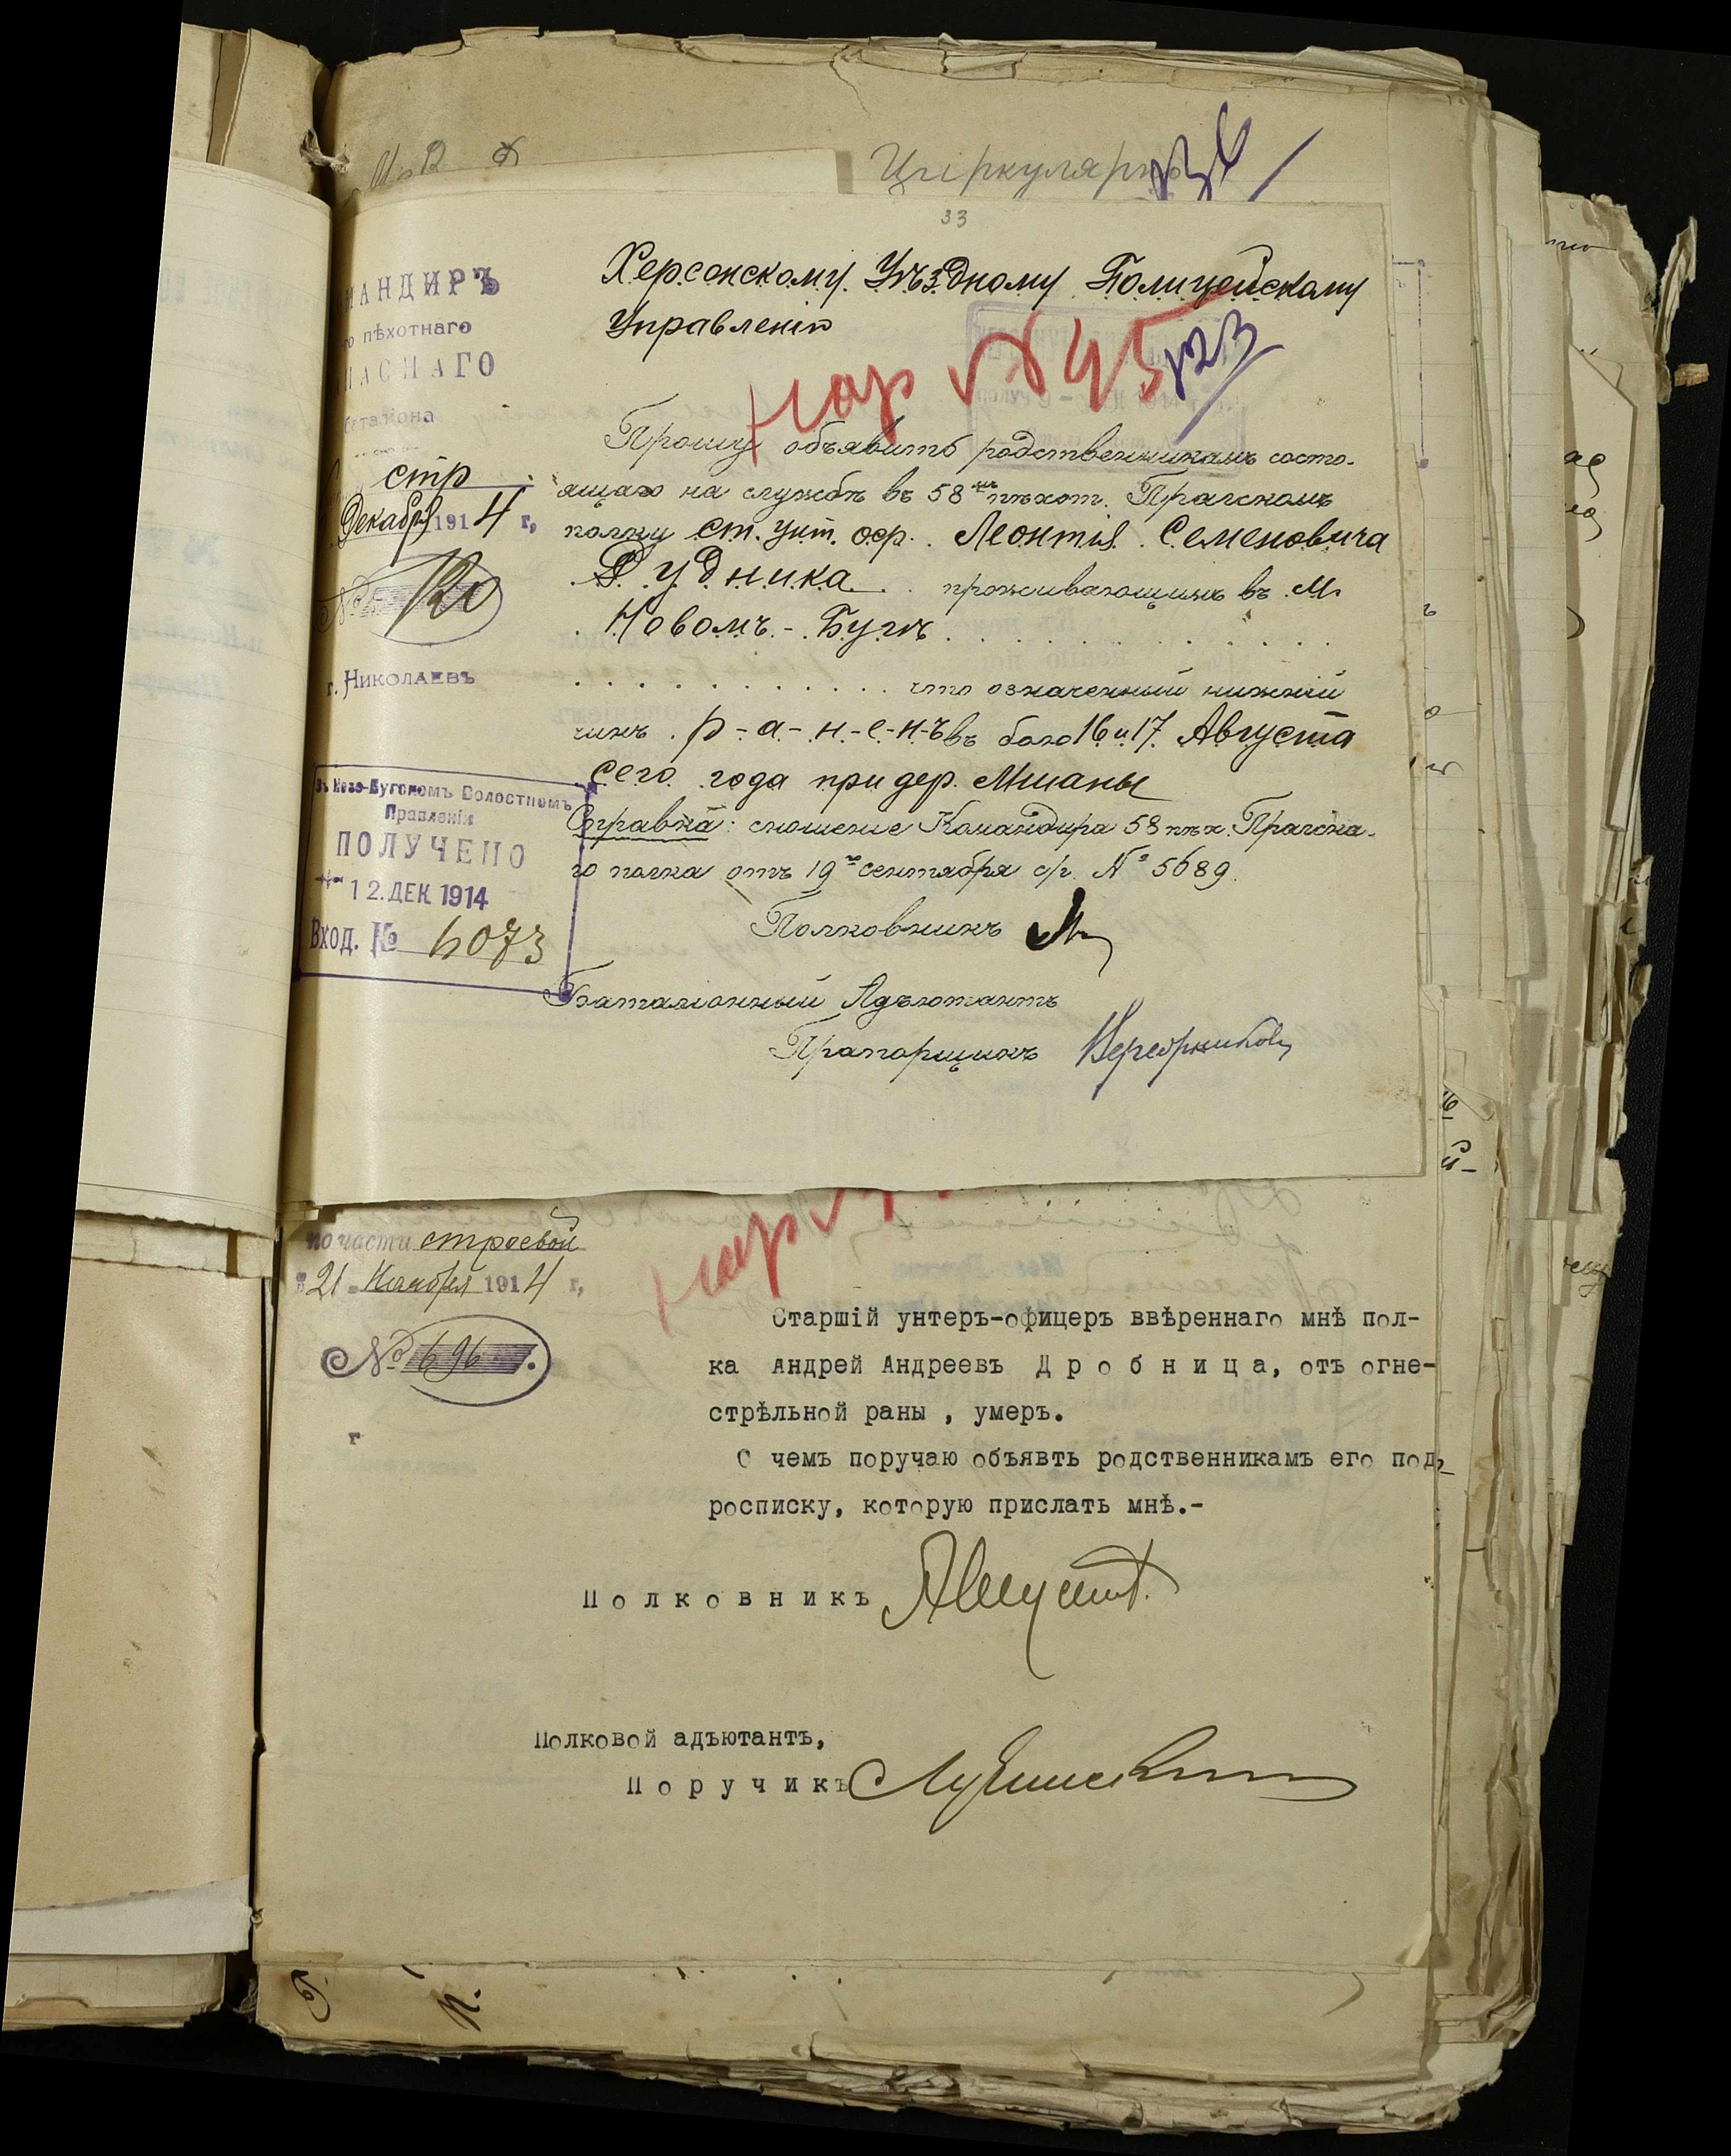 Циркулярно
33
Херсонскому Уѣздному Полицейскому
Управленію
нар № 45
123
АНДИРЪ
го пѣхотнаго
ПАСНАГО
баталіона
стр
Декабря 1914 г,
№ 120
г. Николаевъ
Прошу объявить родственникамъ состо-
ящаго на службѣ въ 58мъ пѣхот. Прагскомъ
полку ст. унт. оф. Леонтія Семеновича
Дудника проживающимъ въ м.
Новомъ-Бугѣ
что означенный нижній
чинъ р-а-н-е-н-ъ въ бою 16 и 17 Августа
сего года при дер. Мшаны
Справка: сношеніе Командира 58 пѣх. Прагска-
го полка отъ 19го сентября с/г. № 5689.
Полковникъ
Баталіонный Адъютантъ
Прапорщикъ
Въ Ново-Бугскомъ Волостномъ
Правленіи
ПОЛУЧЕНО
12. ДЕК 1914
Вход. № 6073
нар
по части строевой
21 Ноября 1914 г,
№ 696.
г
Старшій унтеръ-офицеръ ввѣреннаго мнѣ пол-
ка Андрей Андреевъ Д р о б н и ц а, отъ огне-
стрѣльной раны , умеръ.
О чемъ поручаю объявть родственникамъ его под,-
росписку, которую прислать мнѣ.-
П о л к о в н и к ъ
Полковой адъютантъ,
П о р у ч и к ъ